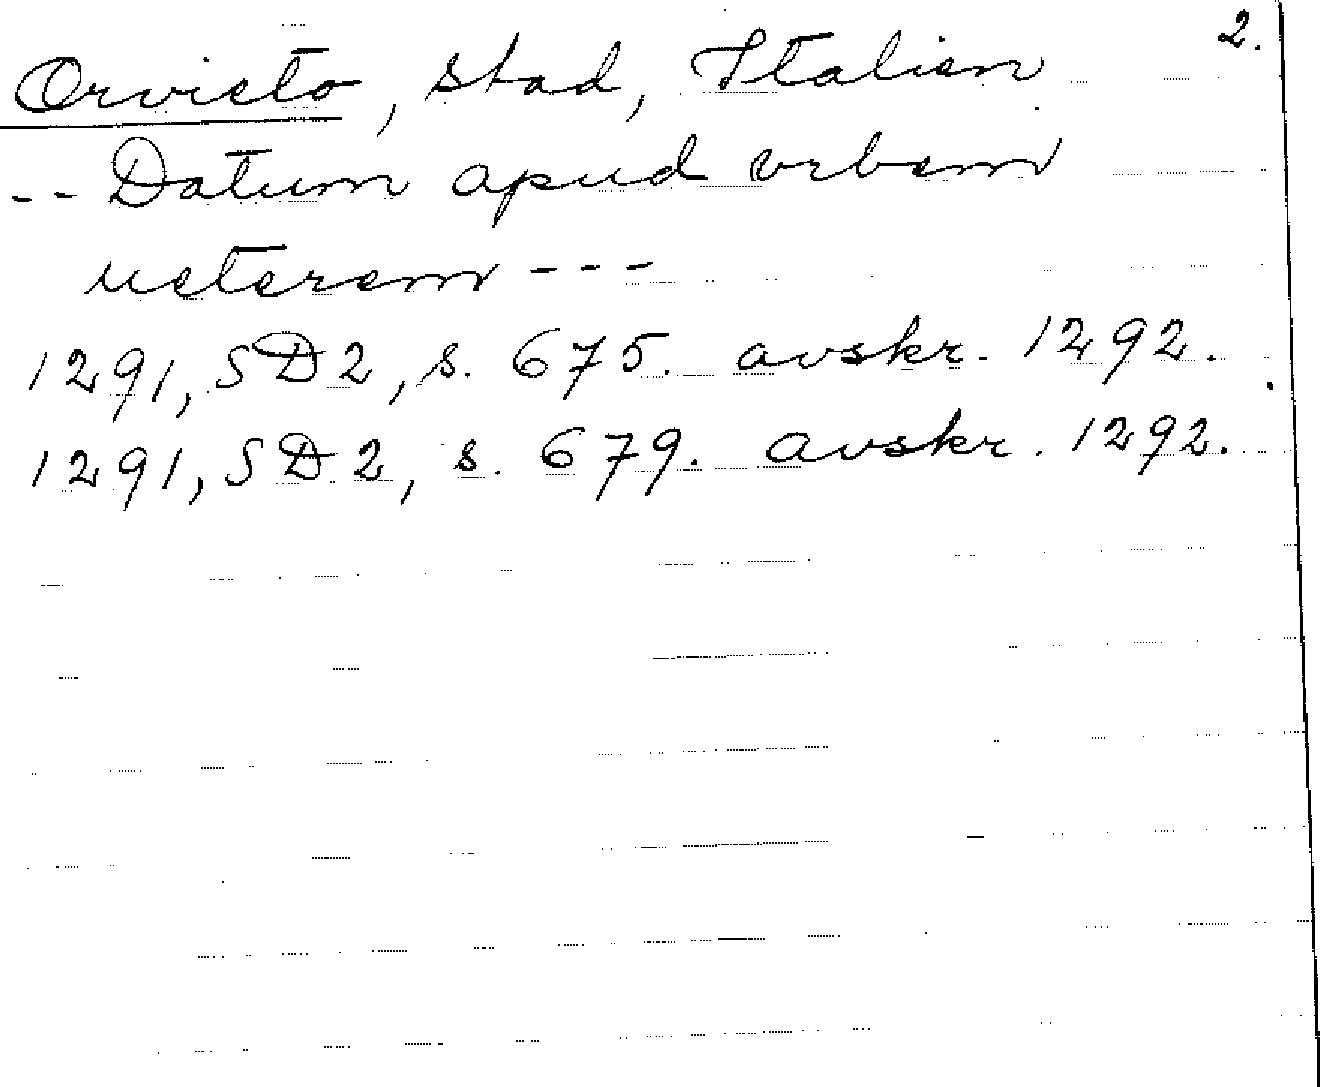 2.
Orvieto, stad, Italien
-- Datum apud vrbem
ueterem ---
1291, SD2, s. 675. avskr. 1292.
1291, SD2, s. 679. avskr. 1292.